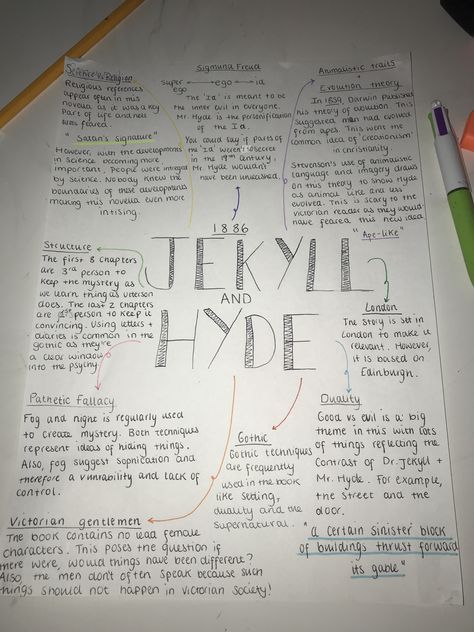 Science vs Religion
Religious references
appear often in this
novella as it was a key
part of life and hell
was feared.
"Satan's signature"
However, with the developments
in science becoming more
important, people were intrigued
by science. Nobody knew the
boundaries of these developments
making this novella even more
intising.
Sigmund Freud
super ego ← ego → id
The 'Id' is meant to be
the inner evil in everyone.
Mr. Hyde is the personification
of the Id.
You could say if parts of
the 'Id' weren't
in the 19th century,
Mr. Hyde wouldn't
have been unleashed.
Animalistic traits
+
Evolution theory
In 1859, Darwin published
his theory of evolution. This
suggested man had evolved
from apes. This went the
common idea of creationism
in christianity.
Stevenson's use of animalistic
language and imagery draws
on this theory to show Hyde
as animal like and less
evolved. This is scary to the
victorian reader as they would
have feared this new idea.
"Ape-like"
1886
JEKYLL
AND
HYDE
Structure
The first 8 chapters
are 3rd person to
keep the mystery as
we learn things as Utterson
does. The last 2 chapters
are 1st person to keep it
convincing. Using letters +
diaries is common in the
gothic as they're
a clear window
into the psyche.
London
The story is set in
London to make it
relevant. However,
it is based on
Edinburgh.
Pathetic Fallacy
Fog and night is regularly used
to create mystery. Both techniques
represent ideas of hiding things.
Also, fog suggest sophication and
therefore a vunerability and lack of
control.
Gothic
Gothic techniques
are frequently
used in the book
like setting,
duality and the
supernatural.
Duality
Good vs evil is a big
theme in this with lots
of things reflecting the
contrast of Dr. Jekyll +
Mr. Hyde. For example,
the street and the
door.
"a certain sinister block
of buildings thrust forward
its gable"
Victorian gentlemen
The book contains no lead female
characters. This poses the question if
there were, would things have been different?
Also, the men don't often speak because such
things should not happen in victorian society!